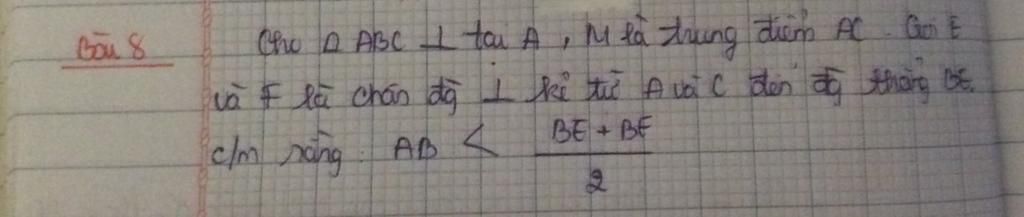 Câu 8 Cho Δ ABC ⊥ tại A, M là trung điểm AC. Gọi E
và F là chân đg ⊥ kẻ từ A và C đến đg thẳng BE.
c/m rằng: AB < (BE + BF)/2